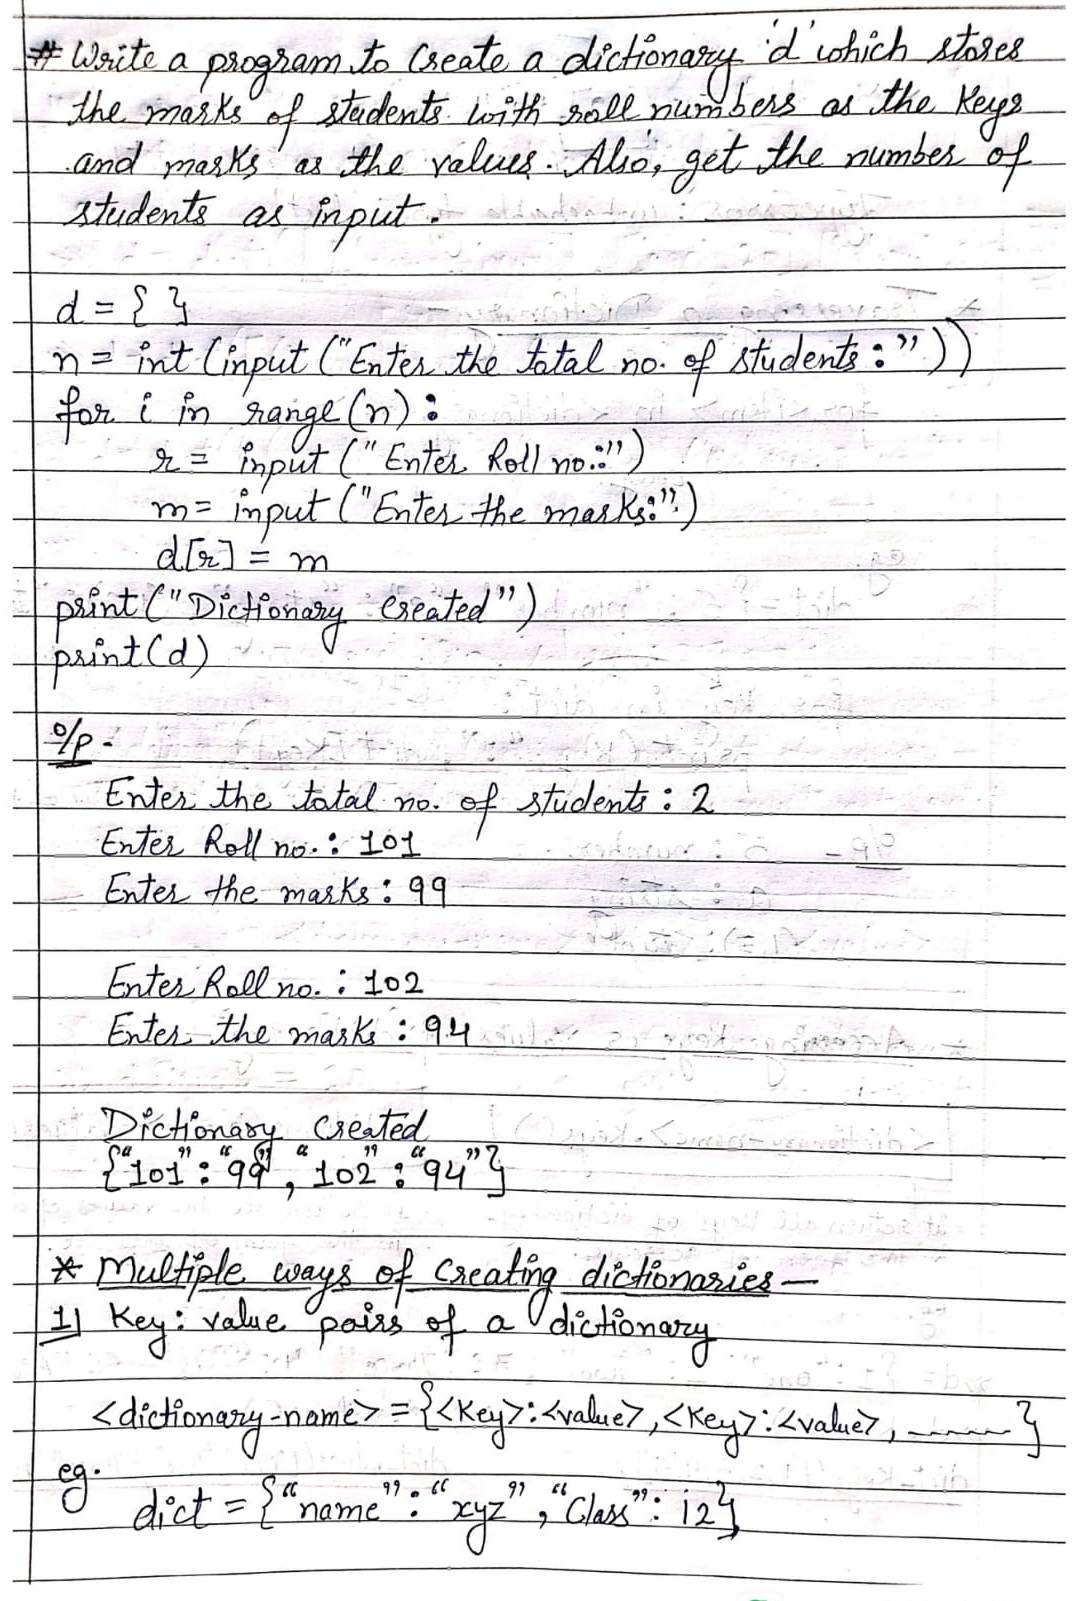 # Write a program to Create a dictionary 'd' which stores
the marks of students with roll numbers as the Keys
and marks as the values. Also, get the number of
students as input.
d = { }
n = int (input ("Enter the total no. of students :"))
for i in range (n) :
r = input ("Enter Roll no.:")
m = input ("Enter the marks:")
d[r] = m
print ("Dictionary Created")
print (d)
o/p -
Enter the total no. of students : 2
Enter Roll no. : 101
Enter the marks : 99
Enter Roll no. : 102
Enter the marks : 94
Dictionary Created
{"101" : "99", "102" : "94"}
* Multiple ways of Creating dictionaries —
1] Key : value pairs of a dictionary
<dictionary-name> = {<Key>:<value>, <Key>:<value>, ........}
eg.
dict = {"name" : "xyz", "Class" : 12}